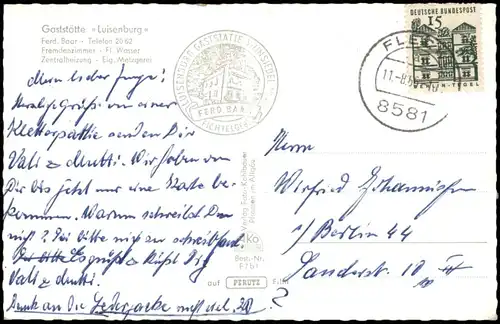 Gaststätte »Luisenburg«
Ferd. Baar - Telefon 20 62
Fremdenzimmer - Fl. Wasser
Zentralheizung - Eig. Metzgerei
LUISENBURG GASTSTÄTTE WUNSIEDEL
FERD. BAAR
FICHTELGEB.
DEUTSCHE BUNDESPOST
15
BERLIN-TEGEL
FLE
11.-8.6
8581
Mein lieber Junge!
Herzl. Grüße von einer
Kletterpartie senden Dir
Vati & Mutti. Wir haben von
Dir bis jetzt nur eine Karte be-
kommen. Warum schreibst Du
nicht? Sei bitte nicht so schreibfaul.
Es grüßt & küßt Dich
Vati & Mutti.
Denk an die Lederjacke
Verlag Foto-Kohlbauer
Pfronten im Allgäu
AKo
Best.-Nr.
auf PERUTZ Film
Herrn
Winfried Johannisson
1/ Berlin 44
Sanderstr. 10